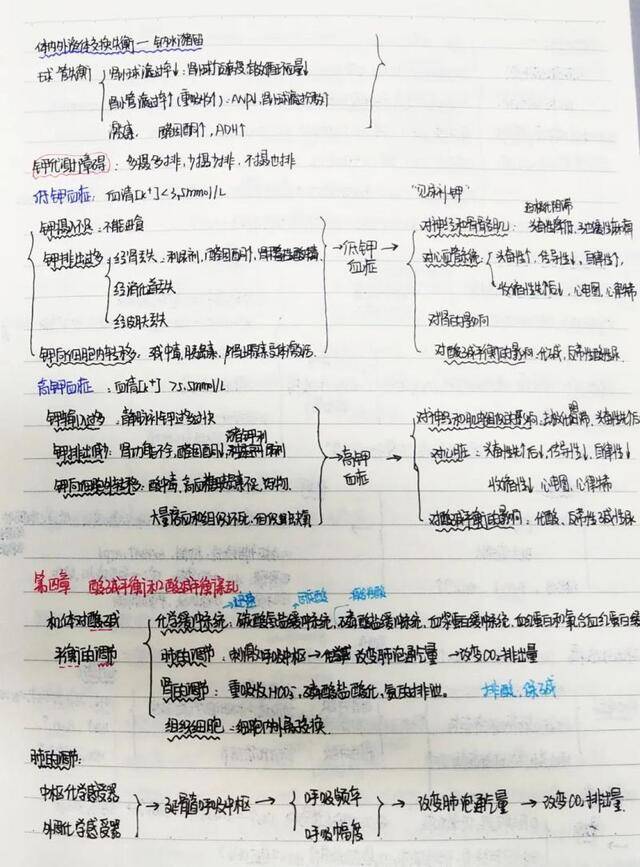 体内外液体交换失衡—钠水潴留
球-管失衡 肾小球滤过率↓：
肾小管 (重吸收↑)：ANP↓, 肾小球滤过分数↑
醛固酮↑, ADH↑
钾代谢障碍：多摄多排, 少摄少排, 不摄也排
低钾血症：血清[K+]<3.5mmol/L "见尿补钾"
钾摄入不足：不能进食 超极化阻滞
对神经和骨骼肌：兴奋性降低
钾排出过多 经肾丢失：利尿剂, 醛固酮↑, →低钾血症→ 对心血管系统：兴奋性↑, 传导性↓, 自律性↑,
经消化道丢失 心电图, 心律失常
经皮肤丢失 对肾的影响
钾向细胞内转移：碱中毒, 胰岛素, 对酸碱平衡的影响：代碱, 反常性酸性尿
高钾血症：血清[K+]>5.5mmol/L
钾摄入过多：静脉补钾过快
钾排出减少：肾功能不全, 醛固酮↓, 潴钾利尿剂 →高钾血症→ 对心脏：兴奋性先↑后↓, 传导性↓, 自律性↓
钾向细胞外转移：酸中毒, 高血糖胰岛素不足, 药物, 收缩性↓, 心电图, 心律失常
大量溶血和组织坏死, 对酸碱平衡的影响：代酸, 反常性碱性尿
第四章 酸碱平衡和酸碱平衡紊乱
机体对酸碱平衡的调节 化学缓冲系统：碳酸氢盐缓冲系统, 磷酸盐缓冲系统, 血浆蛋白缓冲系统, 血红蛋白和氧合血红蛋白缓
肺的调节：刺激呼吸中枢→ 改变肺泡通气量→改变CO₂排出量
肾的调节：重吸收HCO₃⁻, 磷酸盐酸化, 氨的排泄。 排酸, 保碱
组织细胞：细胞内外离子交换.
肺的调节：
中枢化学感受器 呼吸频率
→延髓呼吸中枢→ →改变肺泡通气量→改变CO₂排出量.
外周化学感受器 呼吸幅度